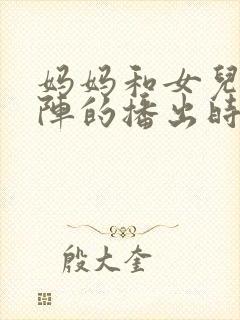 妈妈和女兒
陣的播出時
殷大奎